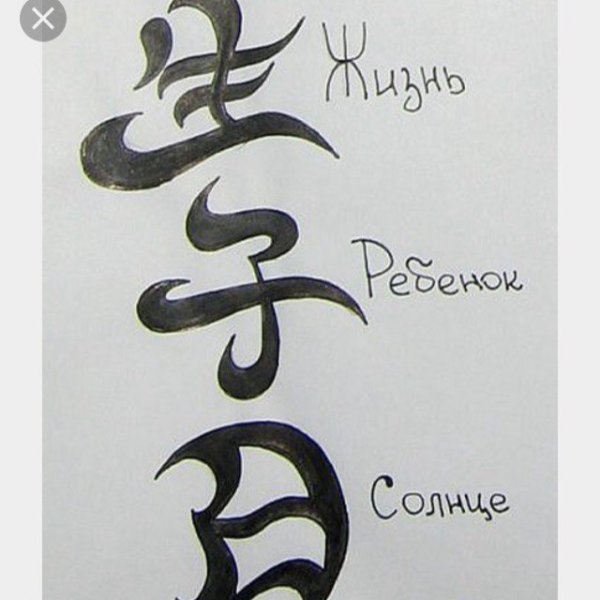 生 Жизнь
子 Ребенок
日 Солнце